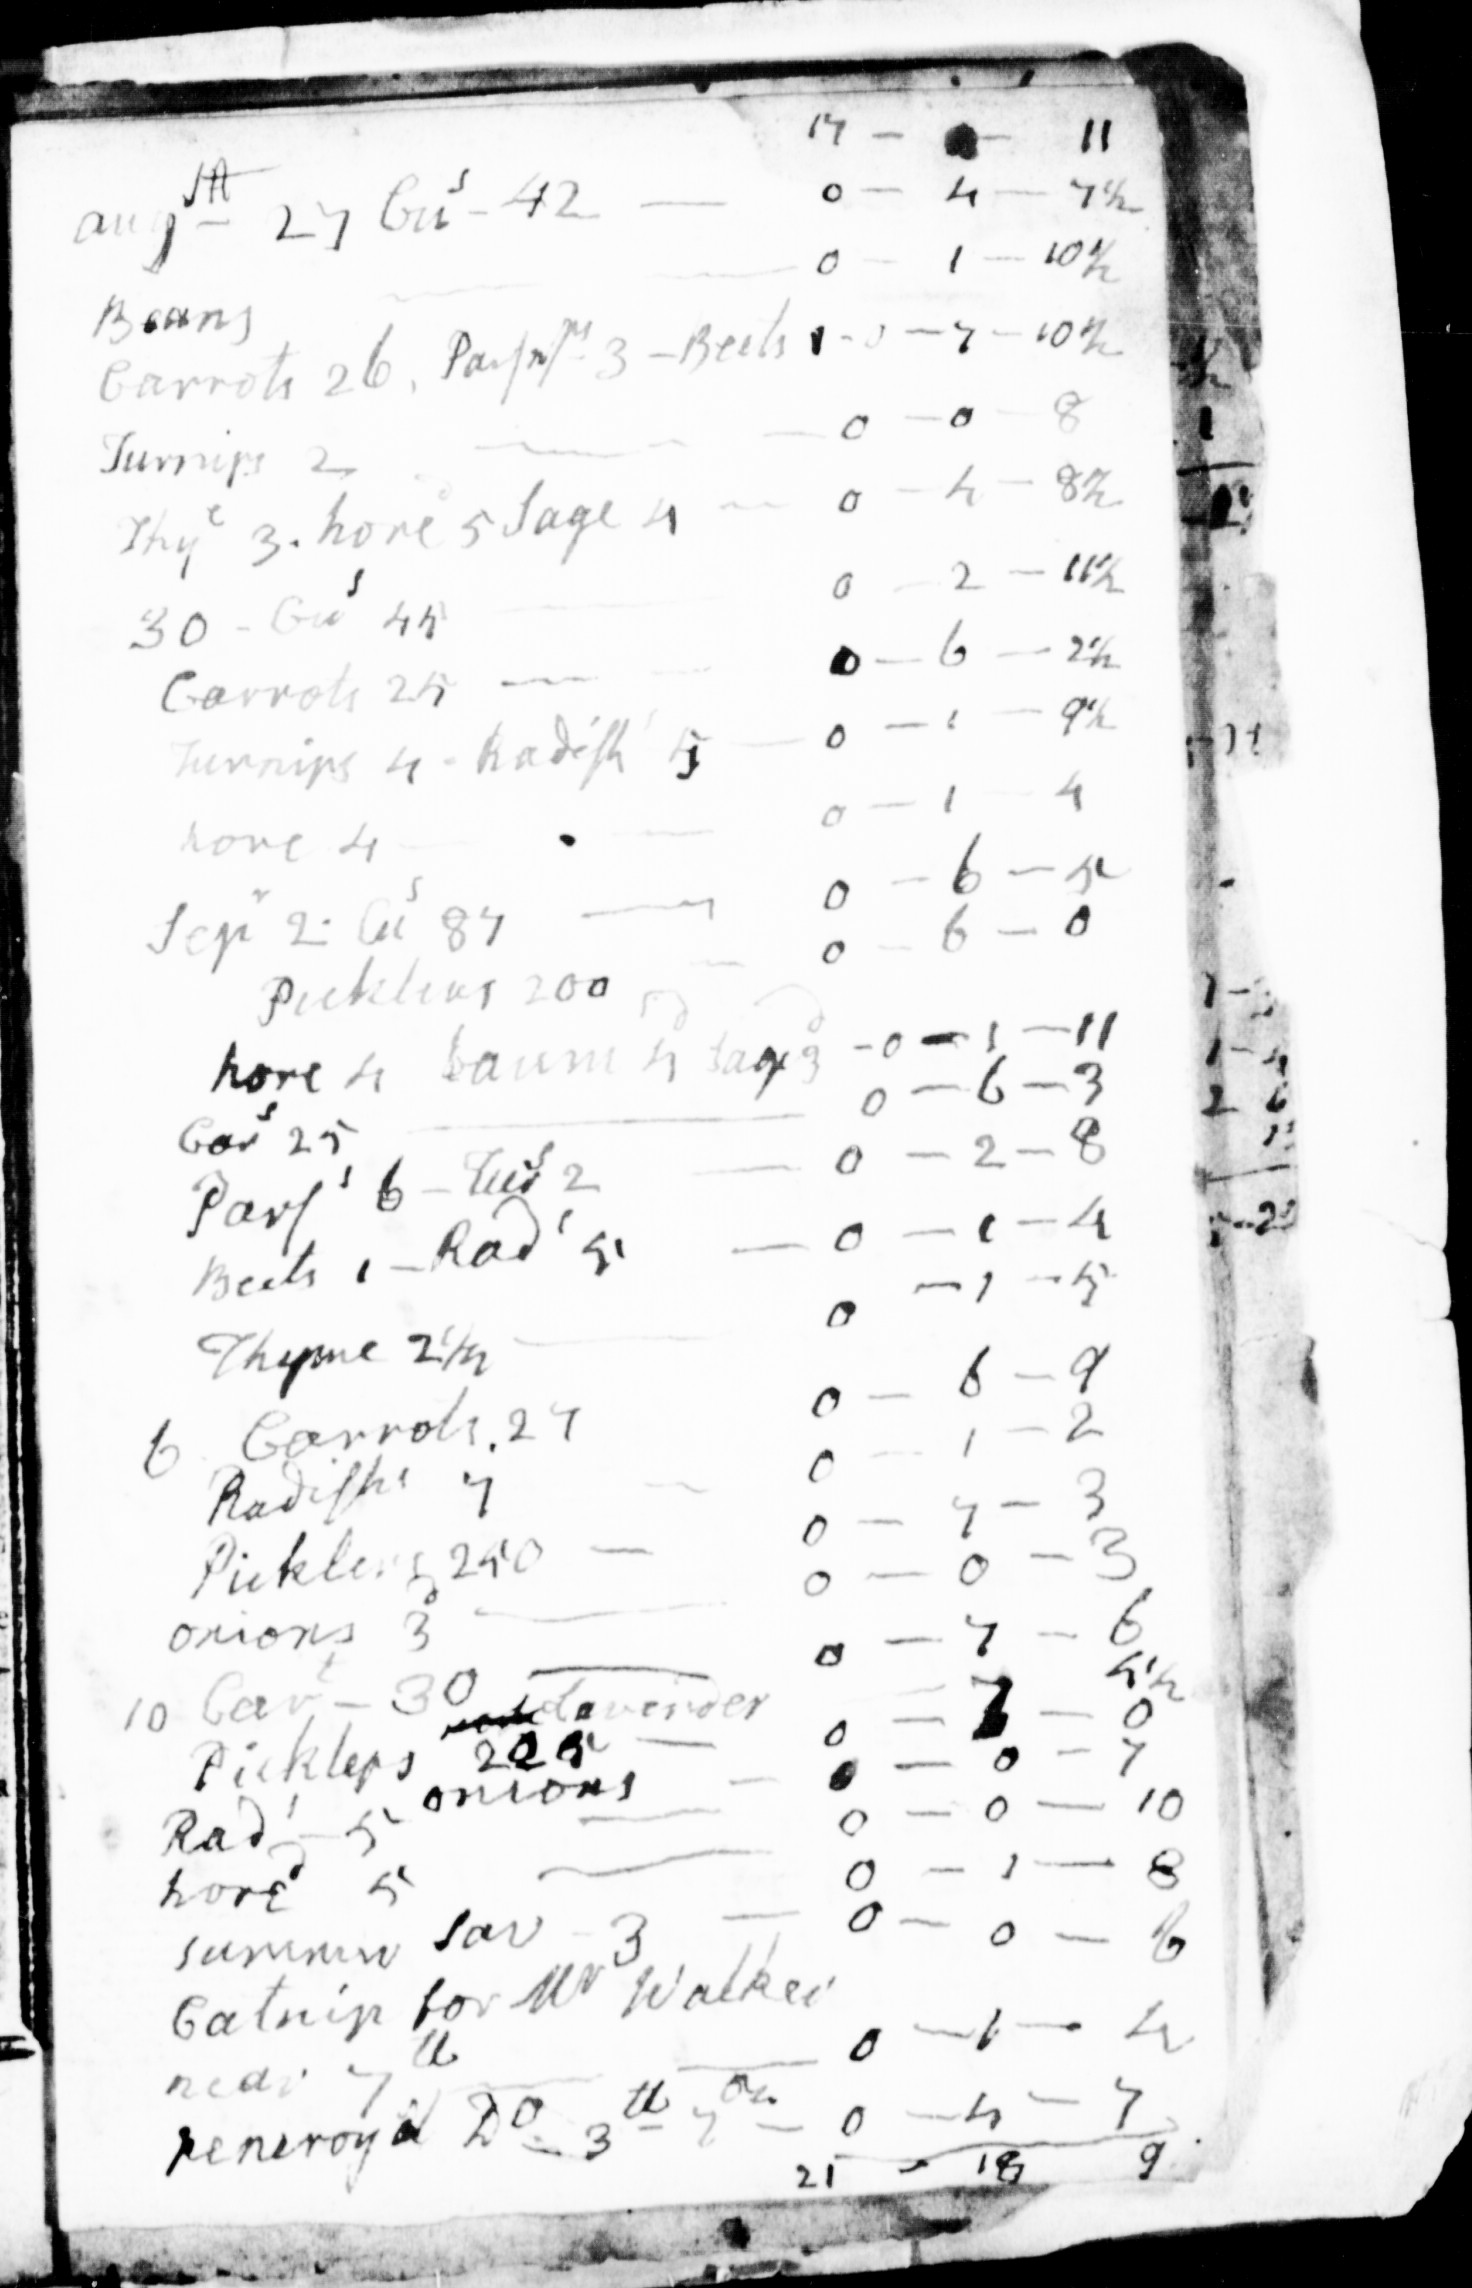 17 — — 11
augst 27 Cus - 42 — 0 — 4 — 7½
Beans — 0 — 1 — 10½
Carrots 26, Parsns 3 - Beets 1 - 0 — 7 — 10½
Turnips 2 — 0 — 0 — 8
Thye 3. hore 5 Sage 4 — 0 — 4 — 8½
30 - Cus 45 0 — 2 — 11½
Carrots 25 — 0 — 6 — 2½
Turnips 4 - Radish 5 — 0 — 1 — 9½
hore 4 — 0 — 1 — 4
Sepr 2 - Cus 87 — 0 — 6 — 5
Picklers 200 — 0 — 6 — 0
hore 4 baum 4 Sage 3 - 0 — 1 — 11
Cars 25 — 0 — 6 — 3
Pars 6 - Tus 2 — 0 — 2 — 8
Beets 1 - Rads 5 — 0 — 1 — 4
Thyme 2½ — 0 — 1 — 5
6 Carrots. 27 0 — 6 — 9
Radishs 7 — 0 — 1 — 2
Picklers 250 — 0 — 7 — 3
onions 3d — 0 — 0 — 3
10 Cart - 30 — 0 — 7 — 6
Lavender 5½
Picklers 225 — 0 — 7 — 0
Rads - 5 onions — 0 — 7
hore 5 — 0 — 0 — 10
summer Sav - 3 — 0 — 1 — 8
Catnip for Mr Walker — 0 — 0 — 6
near 7 lb — 0 — 1 — 4
peneroyal Do - 3 lb - 7 oz — 0 — 4 — 7
21 - 18 9